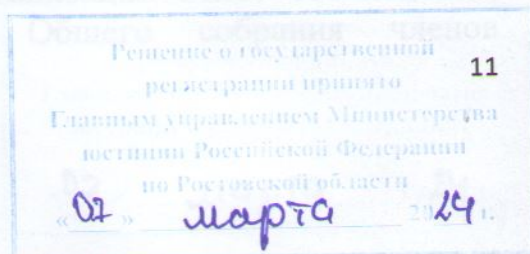 Общего собрания членов
11
Решение о государственной
регистрации принято
Главным управлением Министерства
юстиции Российской Федерации
по Ростовской области
«07» марта 2024 г.